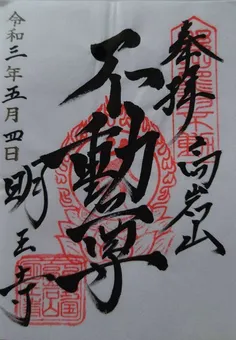 奉拝
高岩山
不動尊
明王寺
令和三年五月四日